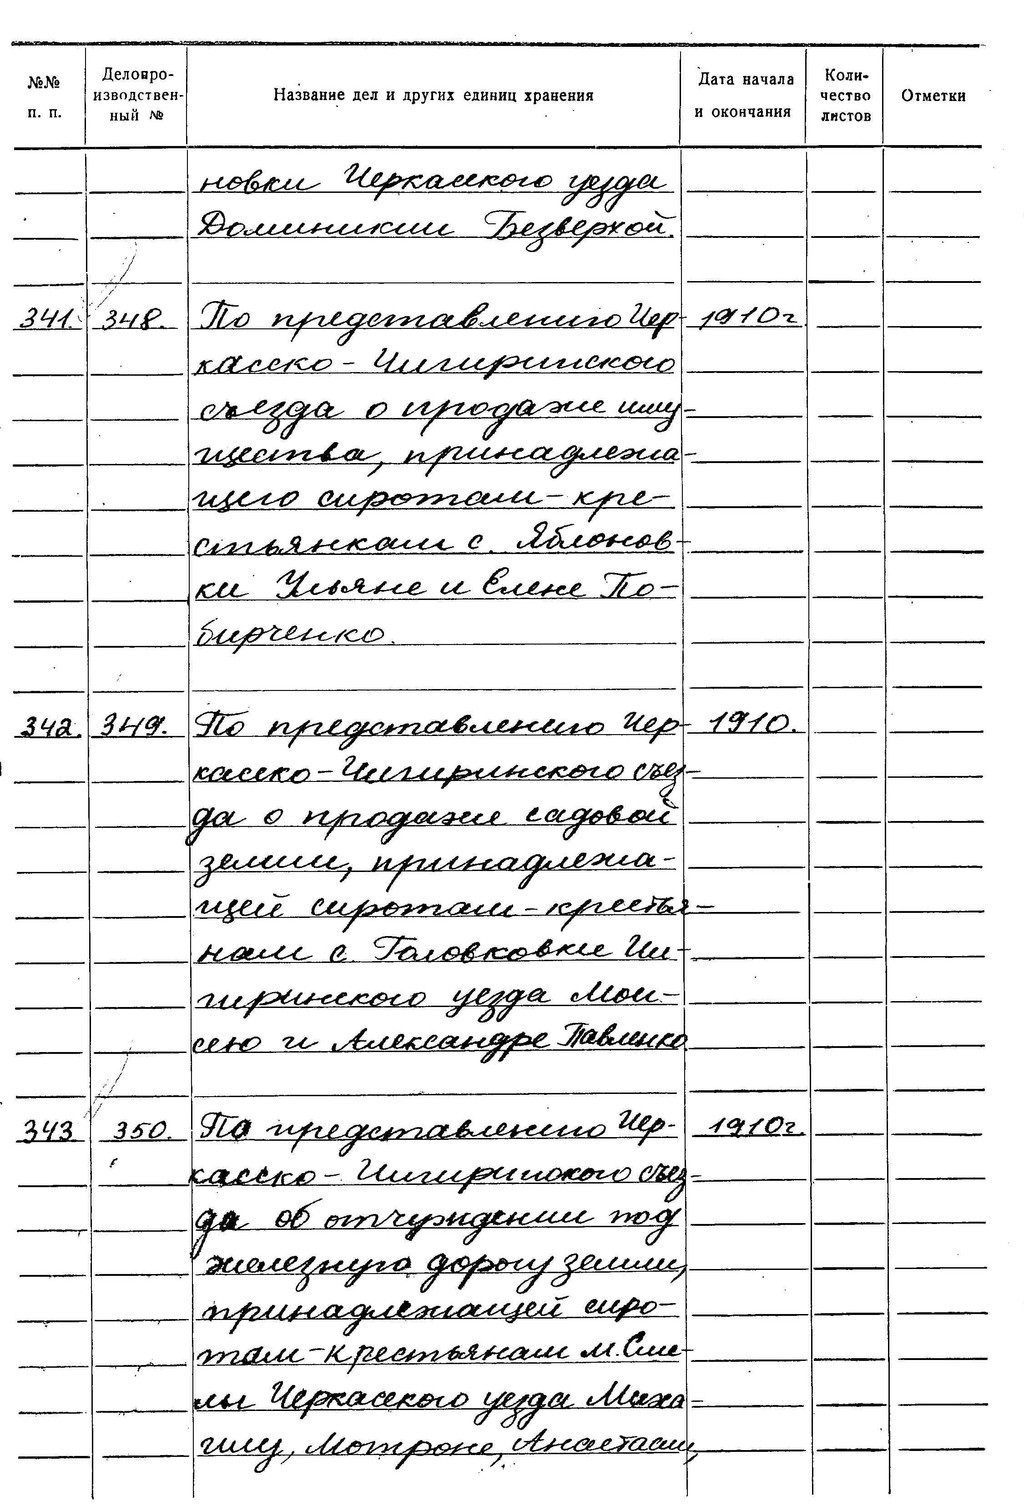 №№ п. п. Делопроизводственный № Название дел и других единиц хранения Дата начала и окончания Количество листов Отметки
новки Черкасского уезда
Доминикии Безверхой.
341. 348. По представлению Чер- 1910г
касско-Чигиринского
съезда о продаже иму-
щества, принадлежа-
щего сиротам-кре-
стьянкам с. Яблонов-
ки Ульяне и Елене По-
бирченко.
342. 349. По представлению Чер- 1910.
касско-Чигиринского съез-
да о продаже садовой
земли, принадлежа-
щей сиротам-крестья-
нам с. Головковки Чи-
гиринского уезда Мои-
сею и Александре Павленко
343 350. По представлению Чер- 1910г.
касско-Чигиринского съез-
да об отчуждении под
железную дорогу земли,
принадлежащей сиро-
там-крестьянам м. Сме-
лы Черкасского уезда Миха-
илу, Мотроне, Анастасии,